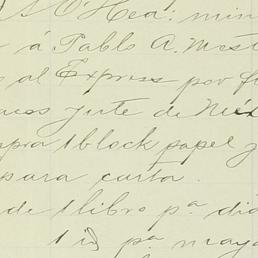 O'Hea: min
á Pablo A. Mest
al Express por f
acos yute de Méx
pra 1 block papel y
para carta.
de 1 libro pª dia
1 id pª mayo